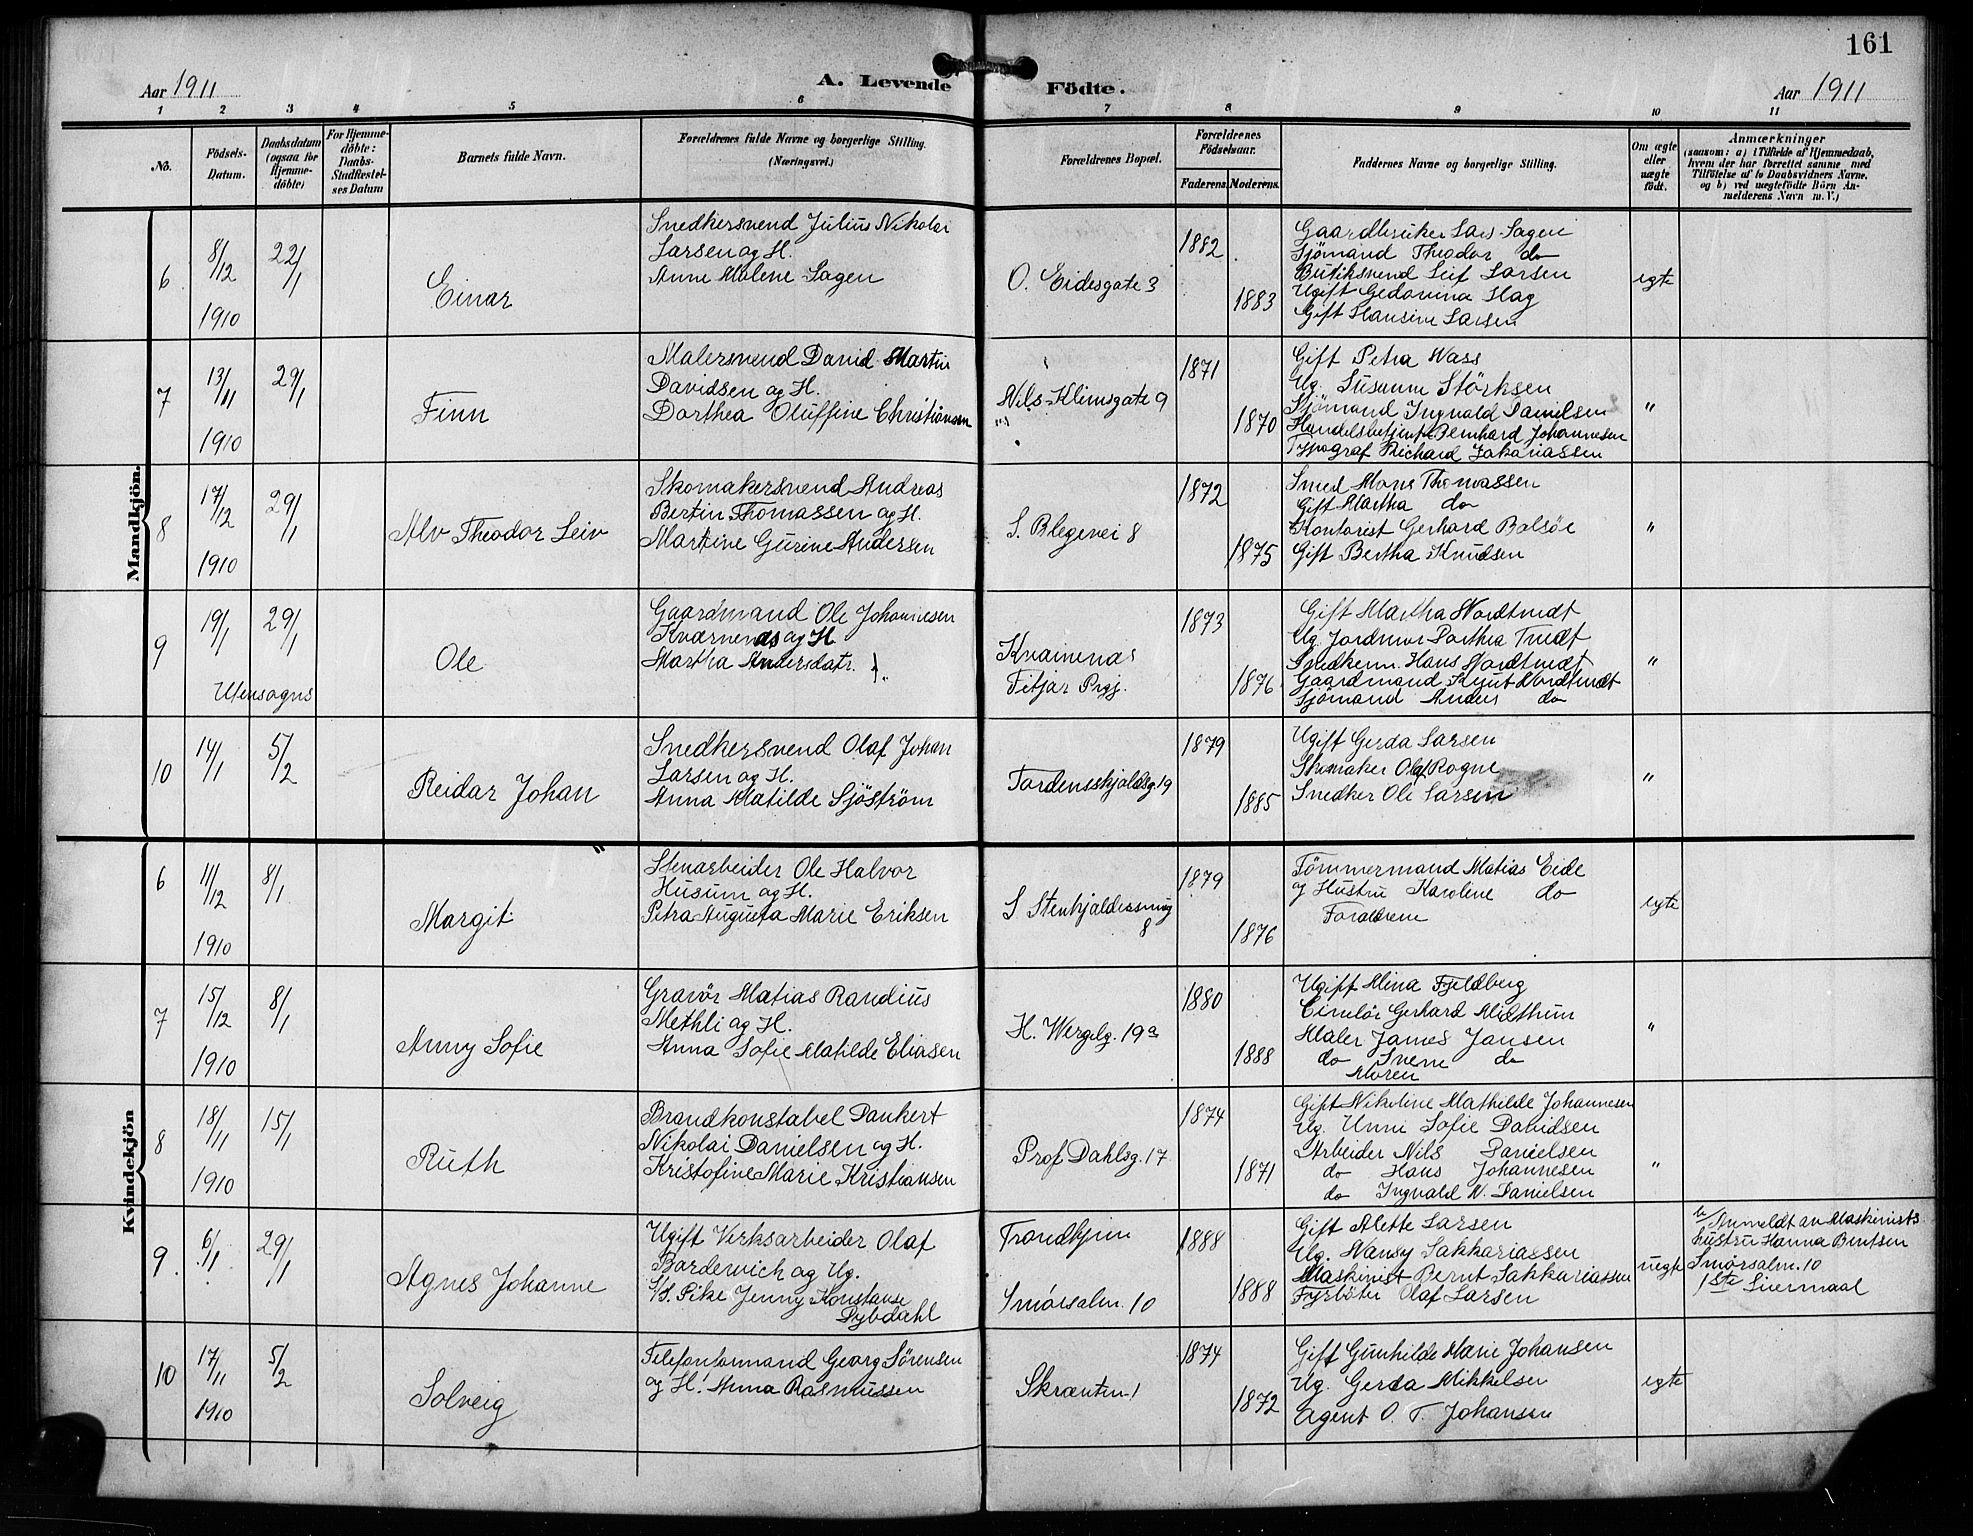 161
Aar 1911
A. Levende Födte.
Aar 1911
1 2 3 4 5 6 7 8 9 10 11
No.
Födsels-Datum.
Daabsdatum (ogsaa for Hjemmedöbte)
For Hjemmedöbte: Daabs-Stadfæstelses Datum
Barnets fulde Navn.
Forældrenes fulde Navne og borgerlige Stilling.
(Næringsvei.)
Forældrenes Bopæl.
Forældrenes Födselsaar.
Faderens. Moderens.
Faddernes Navne og borgerlige Stilling.
Om ægte eller uægte födt.
Anmærkninger
(saasom: a) i Tilfælde af Hjemmedaab,
hvem der har forrettet samme med
Tilföielse af to Daabsvidners Navne,
og b) ved uægtefödte Börn An-
melderens Navn m. V.)
Mandkjön.
6
8/12 1910
22/1
Einar
Snedkersvend Julius Nikolai
Larsen og H.
Anne Malene Sagen
O. Eidesgate 3
1882
1883
Gaardbruker Lars Sagen
Sjömand Theodor do
Butiksvend Leif Larsen
Ugift Gedonina Hag
Gift Hansine Larsen
egte
7
13/11 1910
29/1
Finn
Malersvend David Martin
Davidsen og H.
Dorthea Oluffine Christiansen
Nils-Klimsgate 9
1871
1870
Gift Petra Wass
Ug. Susanne Störksen
Sjömand Ingvald Danielsen
Handelsbetjent Bernhard Johannesen
Typograf Richard Zakariassen
"
8
17/12 1910
29/1
Alv Theodor Leiv
Skomakersvend Andreas
Bertin Thomassen og H.
Martine Gurine Andersen
S. Blegevei 8
1872
1875
Smed Mons Thomassen
Gift Martha do
Kontorist Gerhard Balsöe
Gift Bertha Knudsen
"
9
19/1
29/1
Utensogns
Ole
Gaardmand Ole Johannesen
Kværnenæs og H.
Martha Andersdatr.
Kvarnenæs
Fitjar Prgj.
1873
1876
Gift Martha Nordtvedt
Ug. Jordmor Dorthea Tvedt
Snedkersv. Hans Nordtvedt
Gaardmand Knut Nordtvedt
Sjömand Anders do
"
10
14/1
5/2
Reidar Johan
Snedkersvend Olaf Johan
Larsen og H.
Anna Matilde Sjöström
Tordensskjoldsg. 19
1879
1885
Ugift Gerda Larsen
Skomaker Olaf Rogne
Snedker Ole Larsen
"
Kvindekjön
6
11/12 1910
8/1
Margit
Stenarbeider Ole Halvor
Husum og H.
Petra Augusta Marie Eriksen
S Stenkjeldersmug
8
1879
1876
Tömmermand Matias Eide
og Hustru Karoline do
Forældrene
egte
7
15/12 1910
8/1
Anny Sofie
Gravör Matias Randius
Methli og H.
Anna Sofie Matilde Eliasen
H. Wergelg. 19a
1880
1888
Ugift Mina Fjeldberg
Cinelör Gerhard Midthun
Maler James Jansen
do Svene do
Moren
"
8
18/11 1910
15/1
Ruth
Brandkonstabel Dankert
Nikolai Danielsen og H.
Kristofine Marie Kristiansen
Prof Dahlsg. 17
1874
1871
Gift Nikoline Mathilde Johannesen
Ug. Unni Sofie Davidsen
Arbeider Nils Danielsen
do Hans Johannesen
do Ingvald N. Danielsen
"
9
6/1
29/1
Agnes Johanne
Ugift Verksarbeider Olaf
Bardewich og Ug.
Pike Jenny Konstanse
Dybdahl
Trondhjem
Smörsalm. 10
1888
1888
Gift Alette Larsen
Ug. Nansy Sakkariassen
Maskinist Bernt Sakkariassen
Fyrböter Olaf Larsen
uegte
b/ Anmeldt av Maskinists
hustru Hanna Bentsen
Smörsalm. 10
1ste Leiermaal
10
17/11 1910
5/2
Solveig
Telefonformand Georg Sörensen
og H. Anna Rasmussen
Skrænten 1
1874
1872
Gift Gunhilde Marie Johansen
Ug. Gerda Mikkelsen
Agent O. T. Johansen
egte